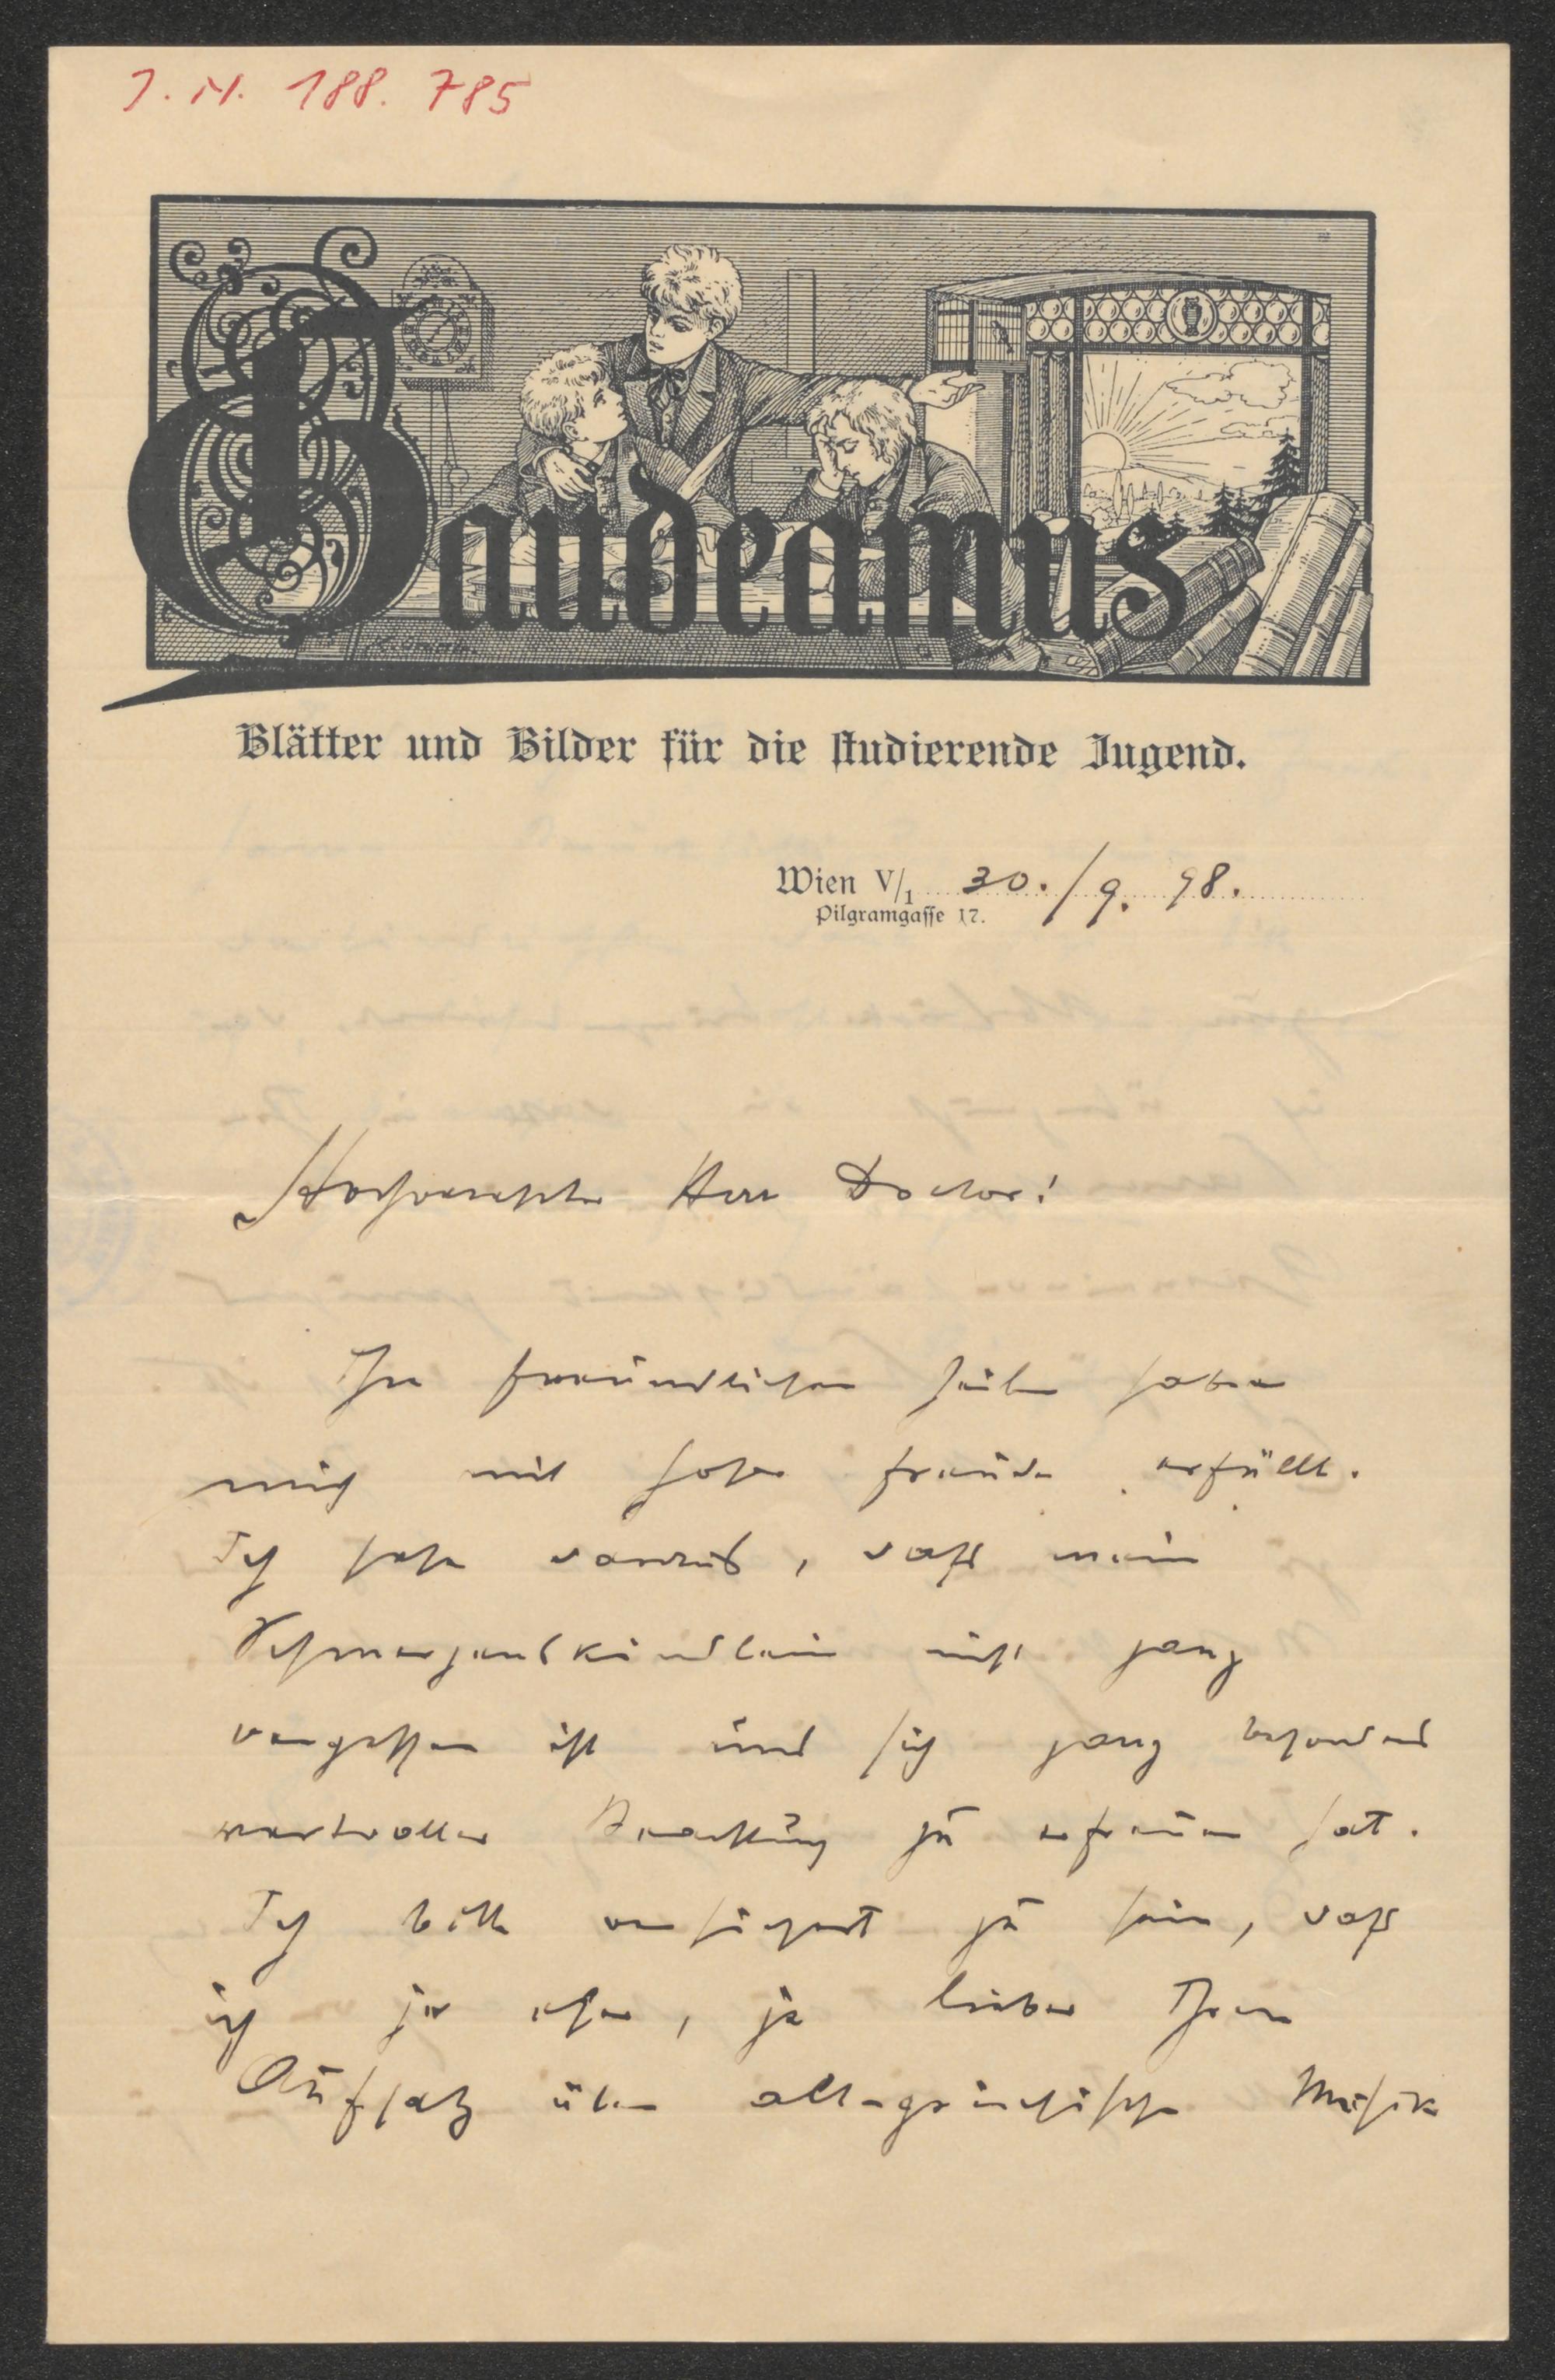 J. N. 188.785
Gaudeamus
Blätter und Bilder für die studierende Jugend.
Wien V/1 30./9. 98.
Pilgramgasse 17.
Hochverehrter Herr Doctor!
Ihre freundlichen Zeilen haben
mich mit hoher Freude erfüllt.
Ich sehe daraus, daß mein
Schmerzenskindlein nicht ganz
vergessen ist und sich ganz besonders
wertvoller Beachtung zu erfreuen hat.
Ich bitte versichert zu sein, daß
ich je eher, je lieber Ihren
Aufsatz über altgriechische Musik